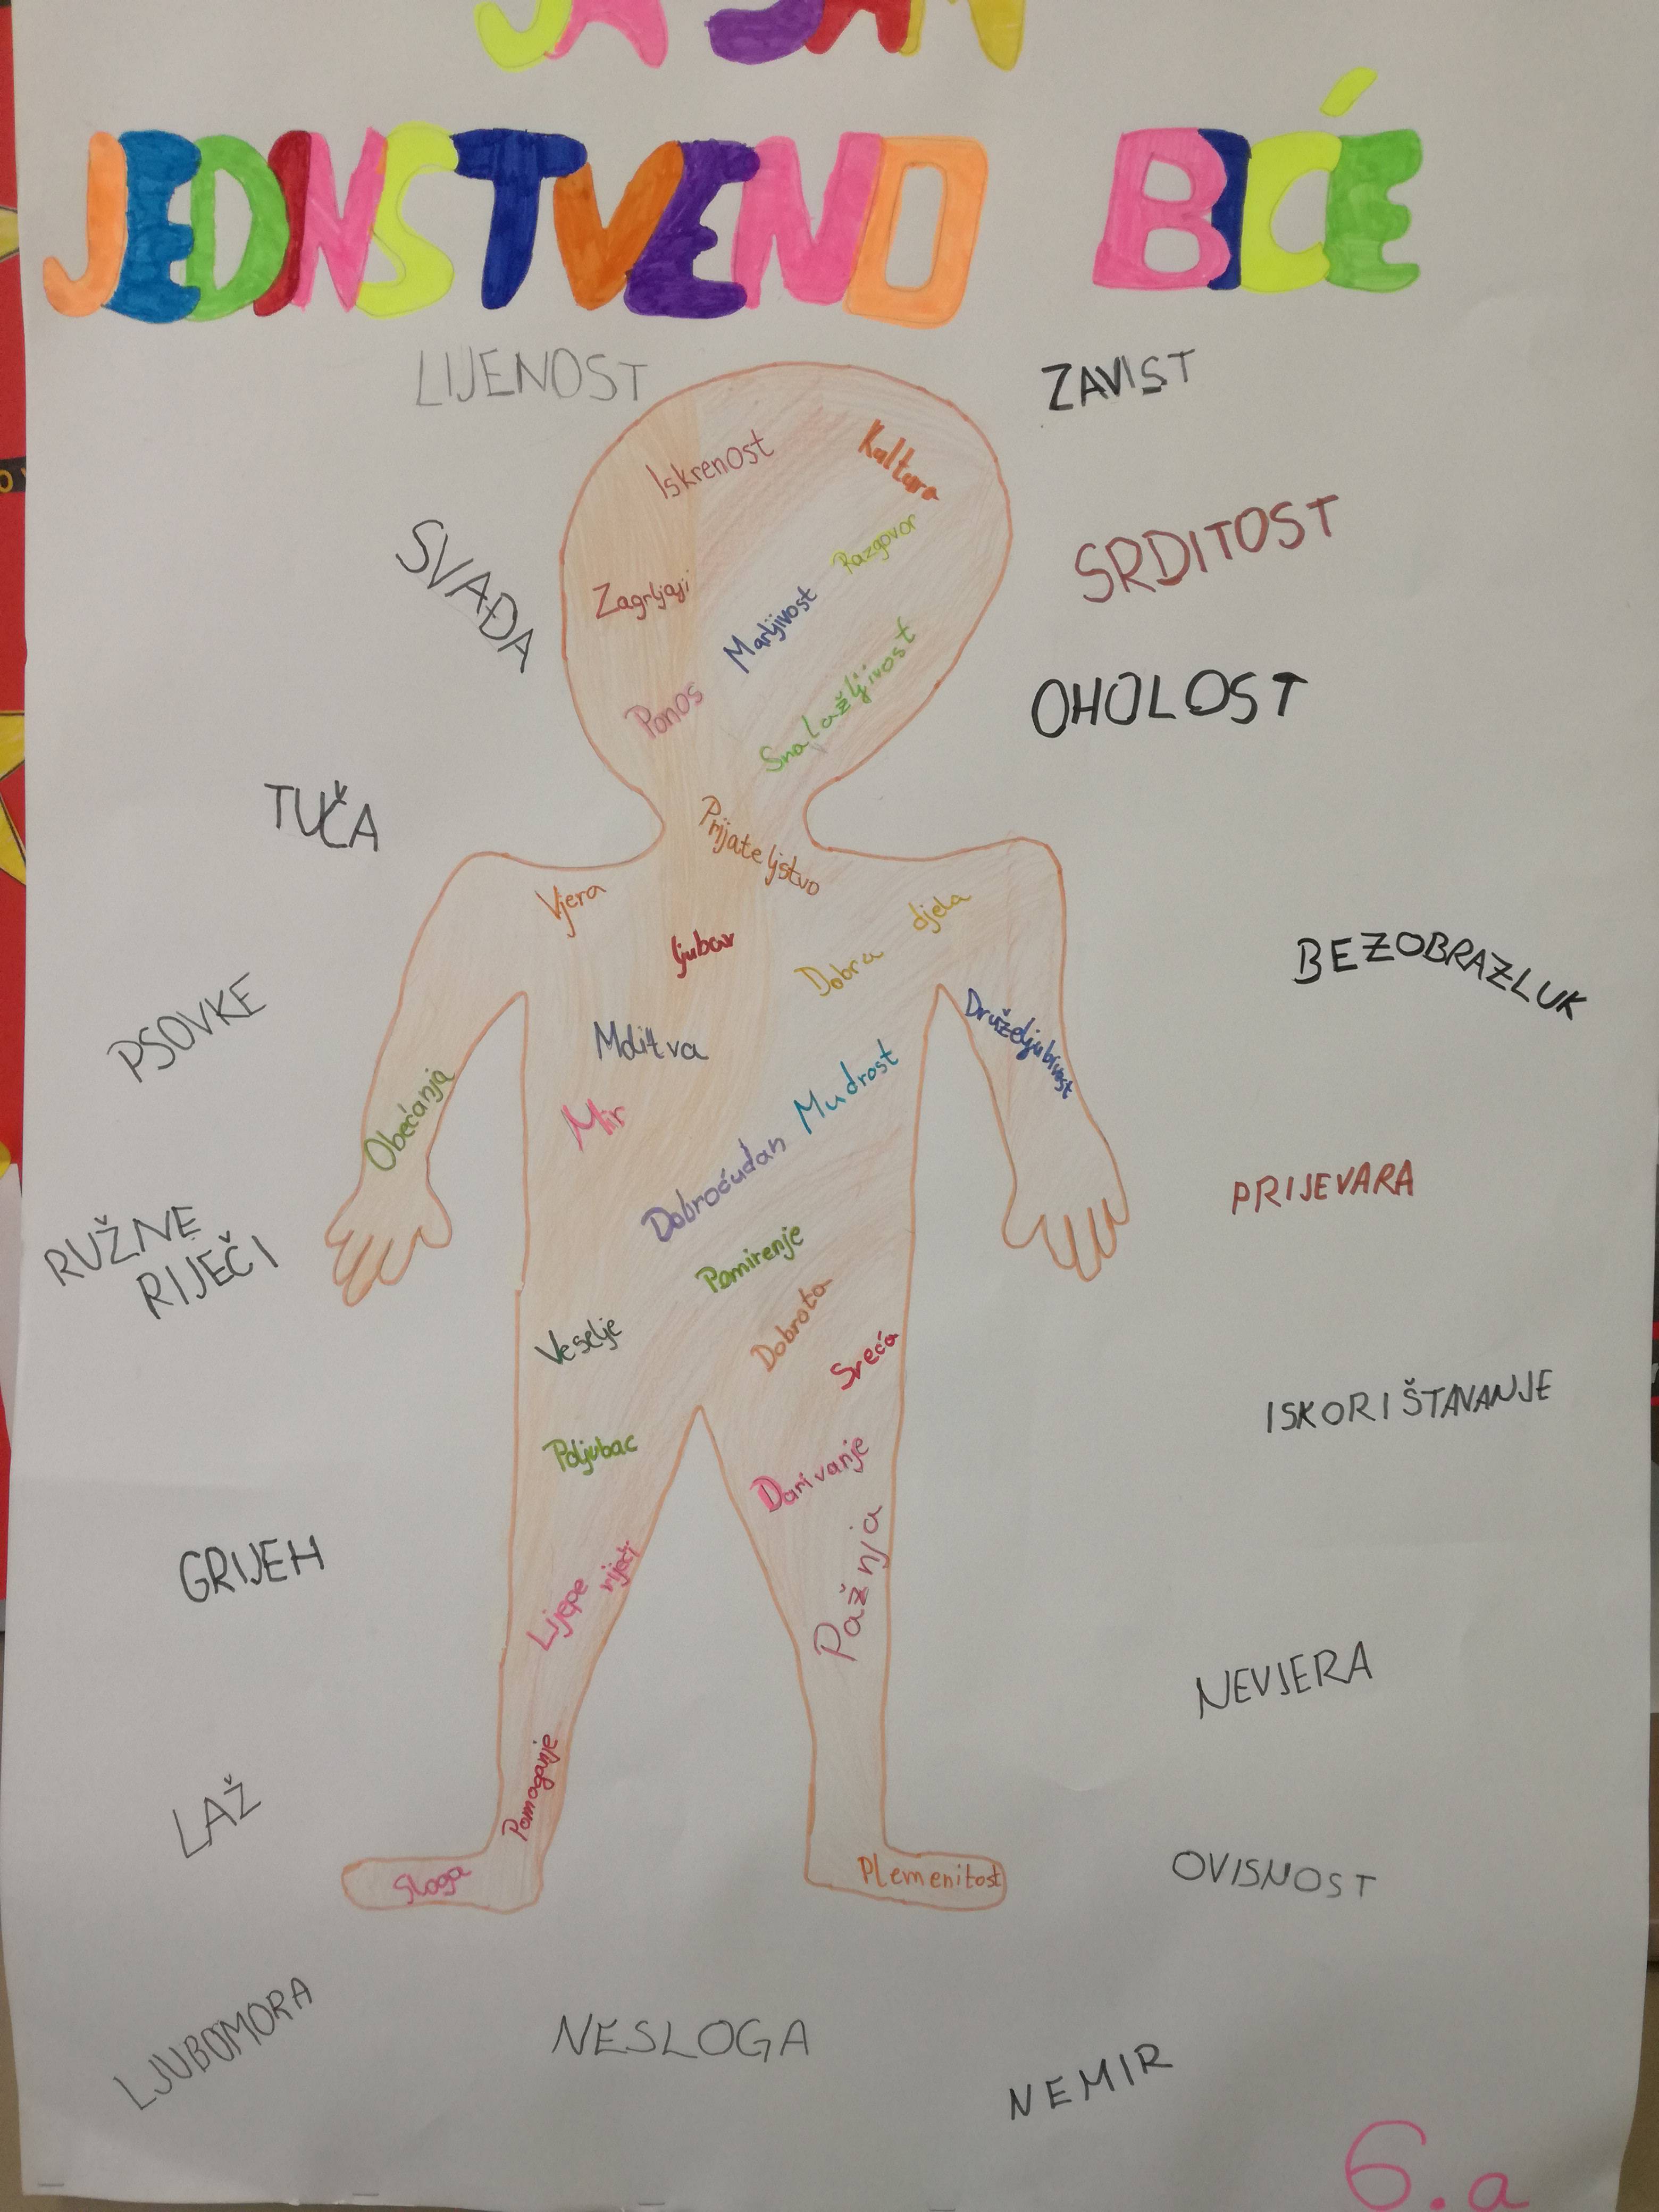 JA SAM
JEDINSTVENO BIĆE
LIJENOST
ZAVIST
Iskrenost
Kultura
SVAĐA
SRDITOST
Razgovor
Zagrljaji
Marljivost
Snalažljivost
Ponos
OHOLOST
TUČA
Prijateljstvo
Vjera
Dobra djela
ljubav
BEZOBRAZLUK
PSOVKE
Molitva
Druželjubivost
Obećanja
Mir
Mudrost
Dobroćudan
PRIJEVARA
RUŽNE
RIJEČI
Pomirenje
Veselje
Dobrota
Sreća
ISKORIŠTAVANJE
Poljubac
Darivanje
GRIJEH
Lijepe riječi
Pažnja
NEVJERA
Pomaganje
LAŽ
Sloga
Plemenitost
OVISNOST
LJUBOMORA
NESLOGA
NEMIR
6.a